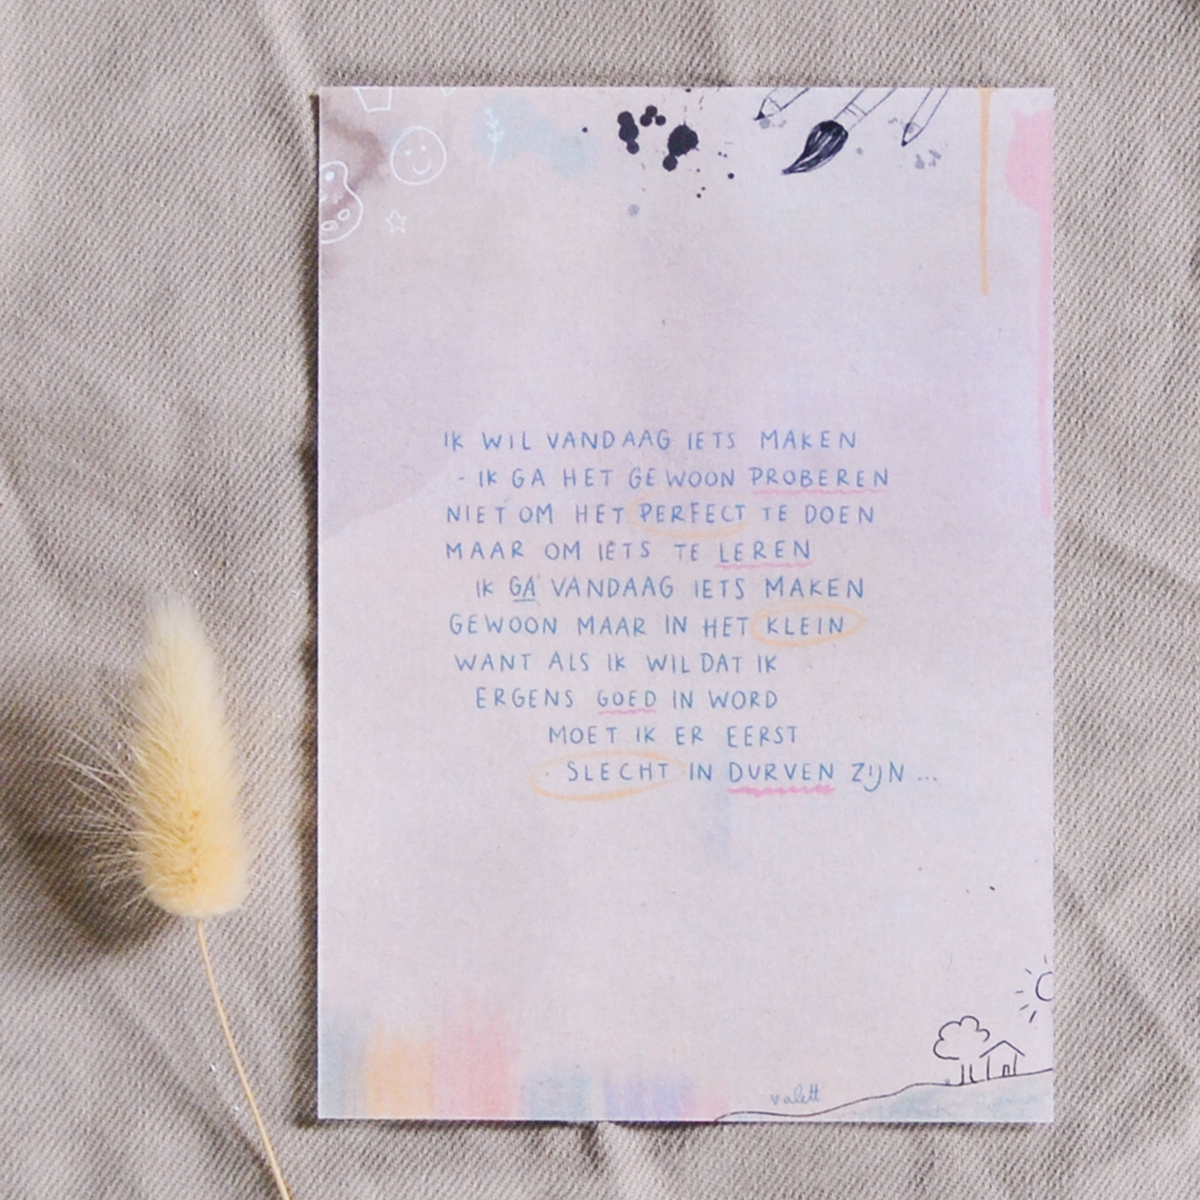 IK WIL VANDAAG IETS MAKEN
- IK GA HET GEWOON PROBEREN
NIET OM HET PERFECT TE DOEN
MAAR OM IETS TE LEREN
IK GA VANDAAG IETS MAKEN
GEWOON MAAR IN HET KLEIN
WANT ALS IK WIL DAT IK
ERGENS GOED IN WORD
MOET IK ER EERST
SLECHT IN DURVEN ZIJN ...
valett